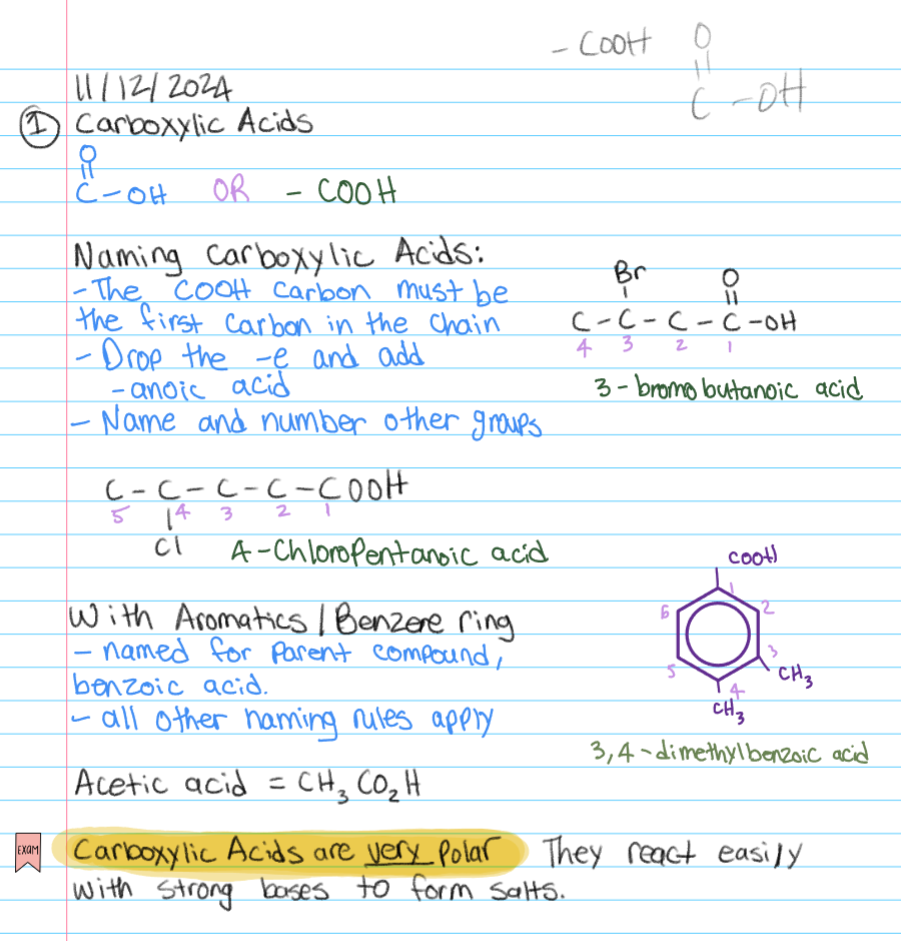 - COOH
O
||
C - OH
11/12/2024
① Carboxylic Acids
O
||
C - OH OR - COOH
Naming Carboxylic Acids:
- The COOH Carbon must be
the first Carbon in the Chain
- Drop the -e and add
-anoic acid
- Name and number other groups
Br O
| ||
C - C - C - C - OH
4 3 2 1
3-bromobutanoic acid
C - C - C - C - COOH
5 4 3 2 1
|
Cl
4-Chloropentanoic acid
With Aromatics / Benzene ring
- named for Parent compound,
benzoic acid.
- all other naming rules apply
COOH
1
6 2
5 3
4 CH₃
CH₃
3,4-dimethylbenzoic acid
Acetic acid = CH₃CO₂H
EXAM
Carboxylic Acids are very Polar They react easily
with strong bases to form salts.